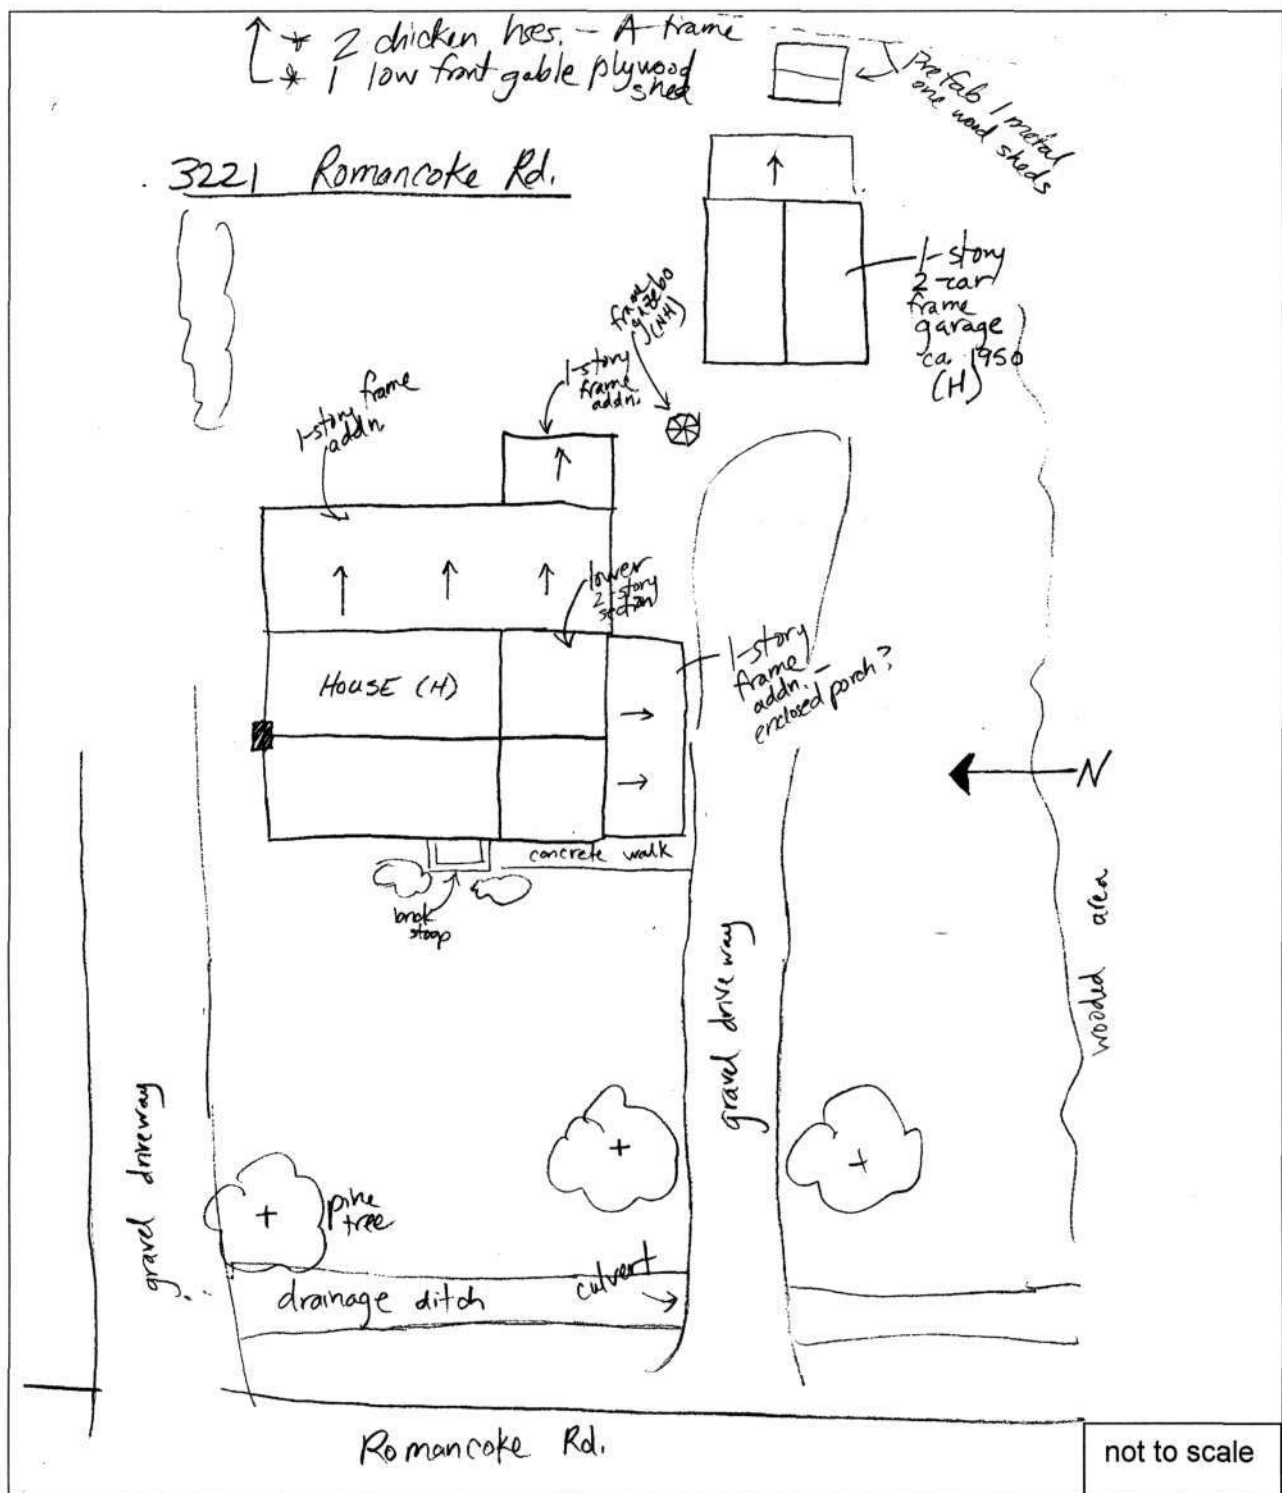 * 2 chicken hses. - A-frame
* 1 low front gable plywood
shed
Prefab 1 metal
one wood sheds
3221 Romancoke Rd.
1-story
2-car
frame
garage
ca. 1950
(H)
frame
gazebo
(NH)
1-story
frame
addn.
1-story frame
addn.
lower
2-story
section
HOUSE (H)
1-story
frame
addn. -
enclosed porch?
N
concrete walk
brick
stoop
wooded area
gravel driveway
gravel driveway
pine
tree
culvert
drainage ditch
Romancoke Rd.
not to scale